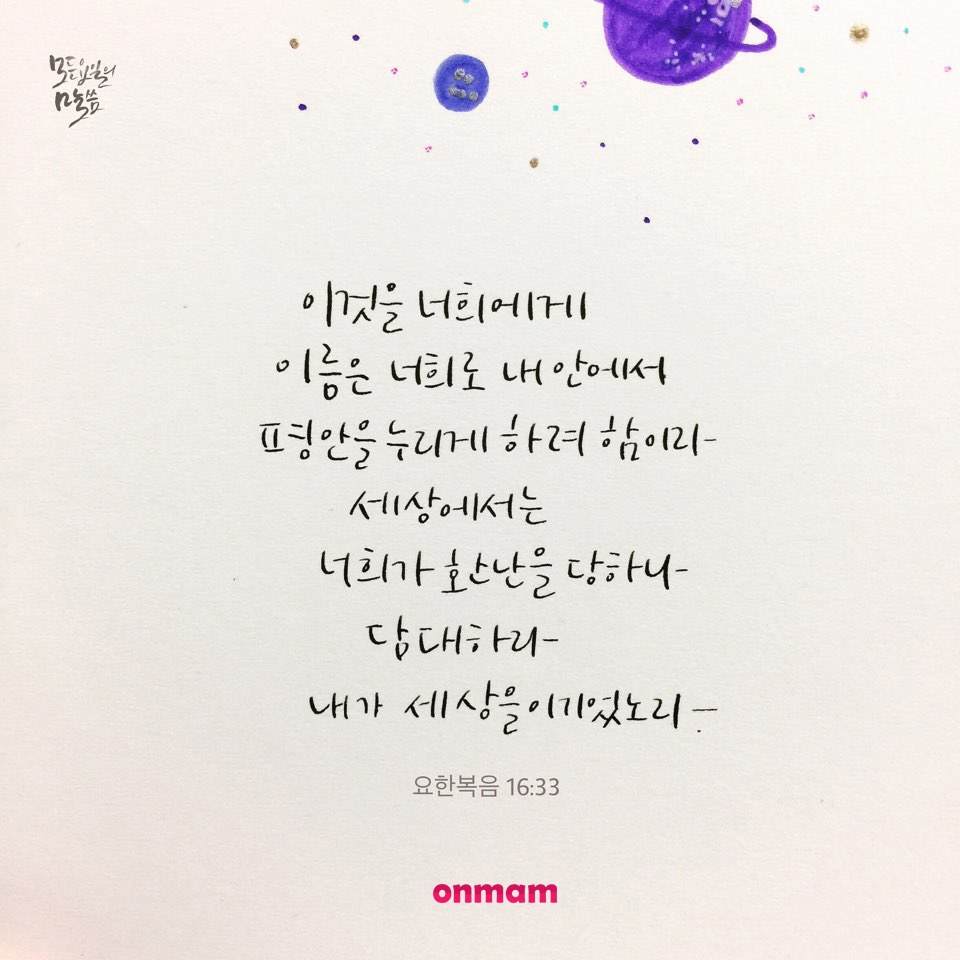 말씀
이것을 너희에게
이름은 너희로 내 안에서
평안을 누리게 하려 함이라
세상에서는
너희가 환난을 당하나
담대하라
내가 세상을 이기었노라
요한복음 16:33
onmam